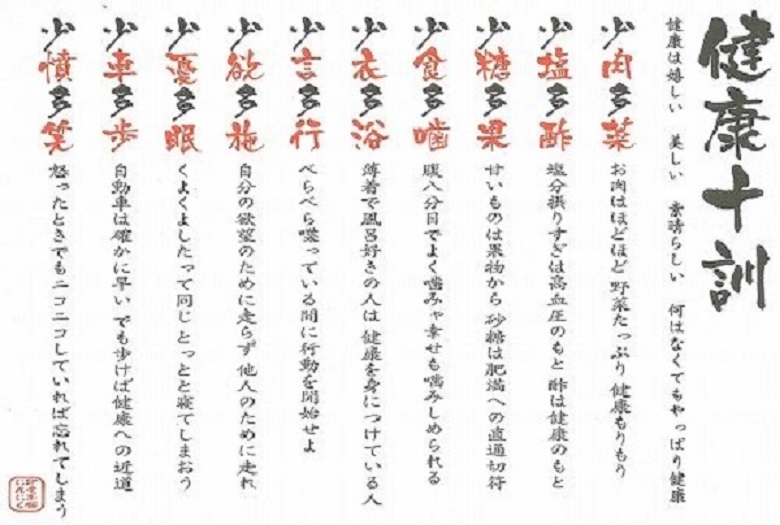 健康十訓
健康は嬉しい 美しい 素晴らしい 何はなくてもやっぱり健康
少肉多菜
お肉はほどほど 野菜たっぷり 健康もりもり
少塩多酢
塩分摂りすぎは高血圧のもと 酢は健康のもと
少糖多果
甘いものは果物から 砂糖は肥満への直通切符
少食多噛
腹八分目でよく噛みゃ幸せも噛みしめられる
少衣多浴
薄着で風呂好きの人は 健康を身につけている人
少言多行
べらべら喋っている間に行動を開始せよ
少欲多施
自分の欲望のために走らず 他人のために走れ
少憂多眠
くよくよしたって同じ とっとと寝てしまおう
少車多歩
自動車は確かに早い でも歩けば健康への近道
少憤多笑
怒ったときでもニコニコしていれば忘れてしまう